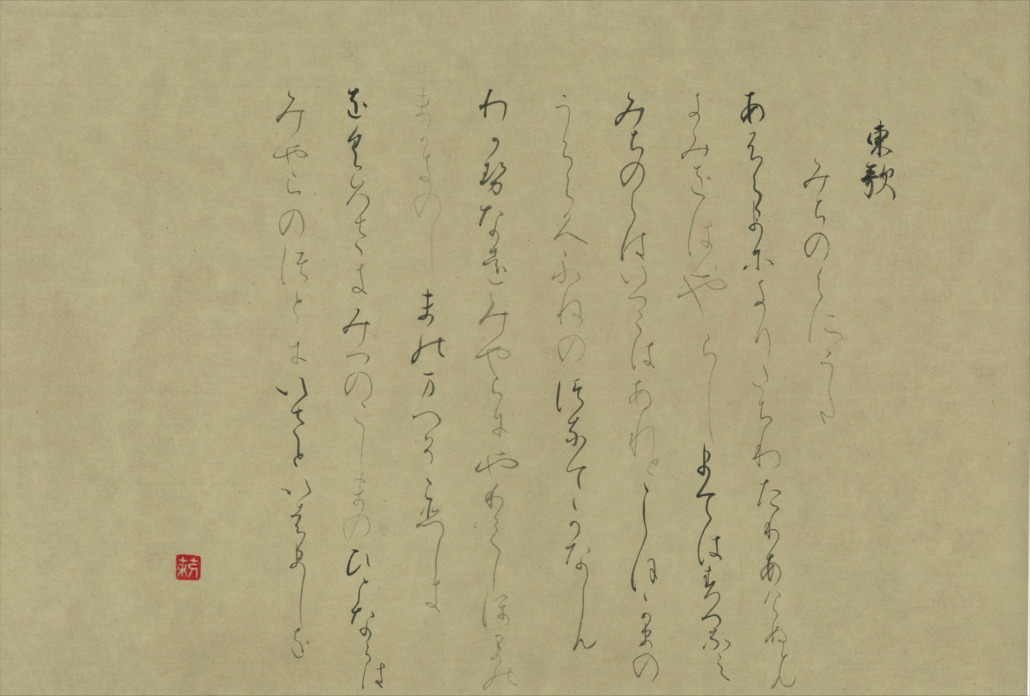 東歌
みちのくにうた
あふくまにきりたちわたりあけぬとん
きみをはやらしまてはすへなみ
みちのくはいつくはあれとしほかまの
うらこくふねのつなてかなしん
わか勢なをみやこにやりてしほかまの
まかきのしまの万つそこひしき
をくろさきみつのこしまのひとならは
みやこのつとにいさといはましを